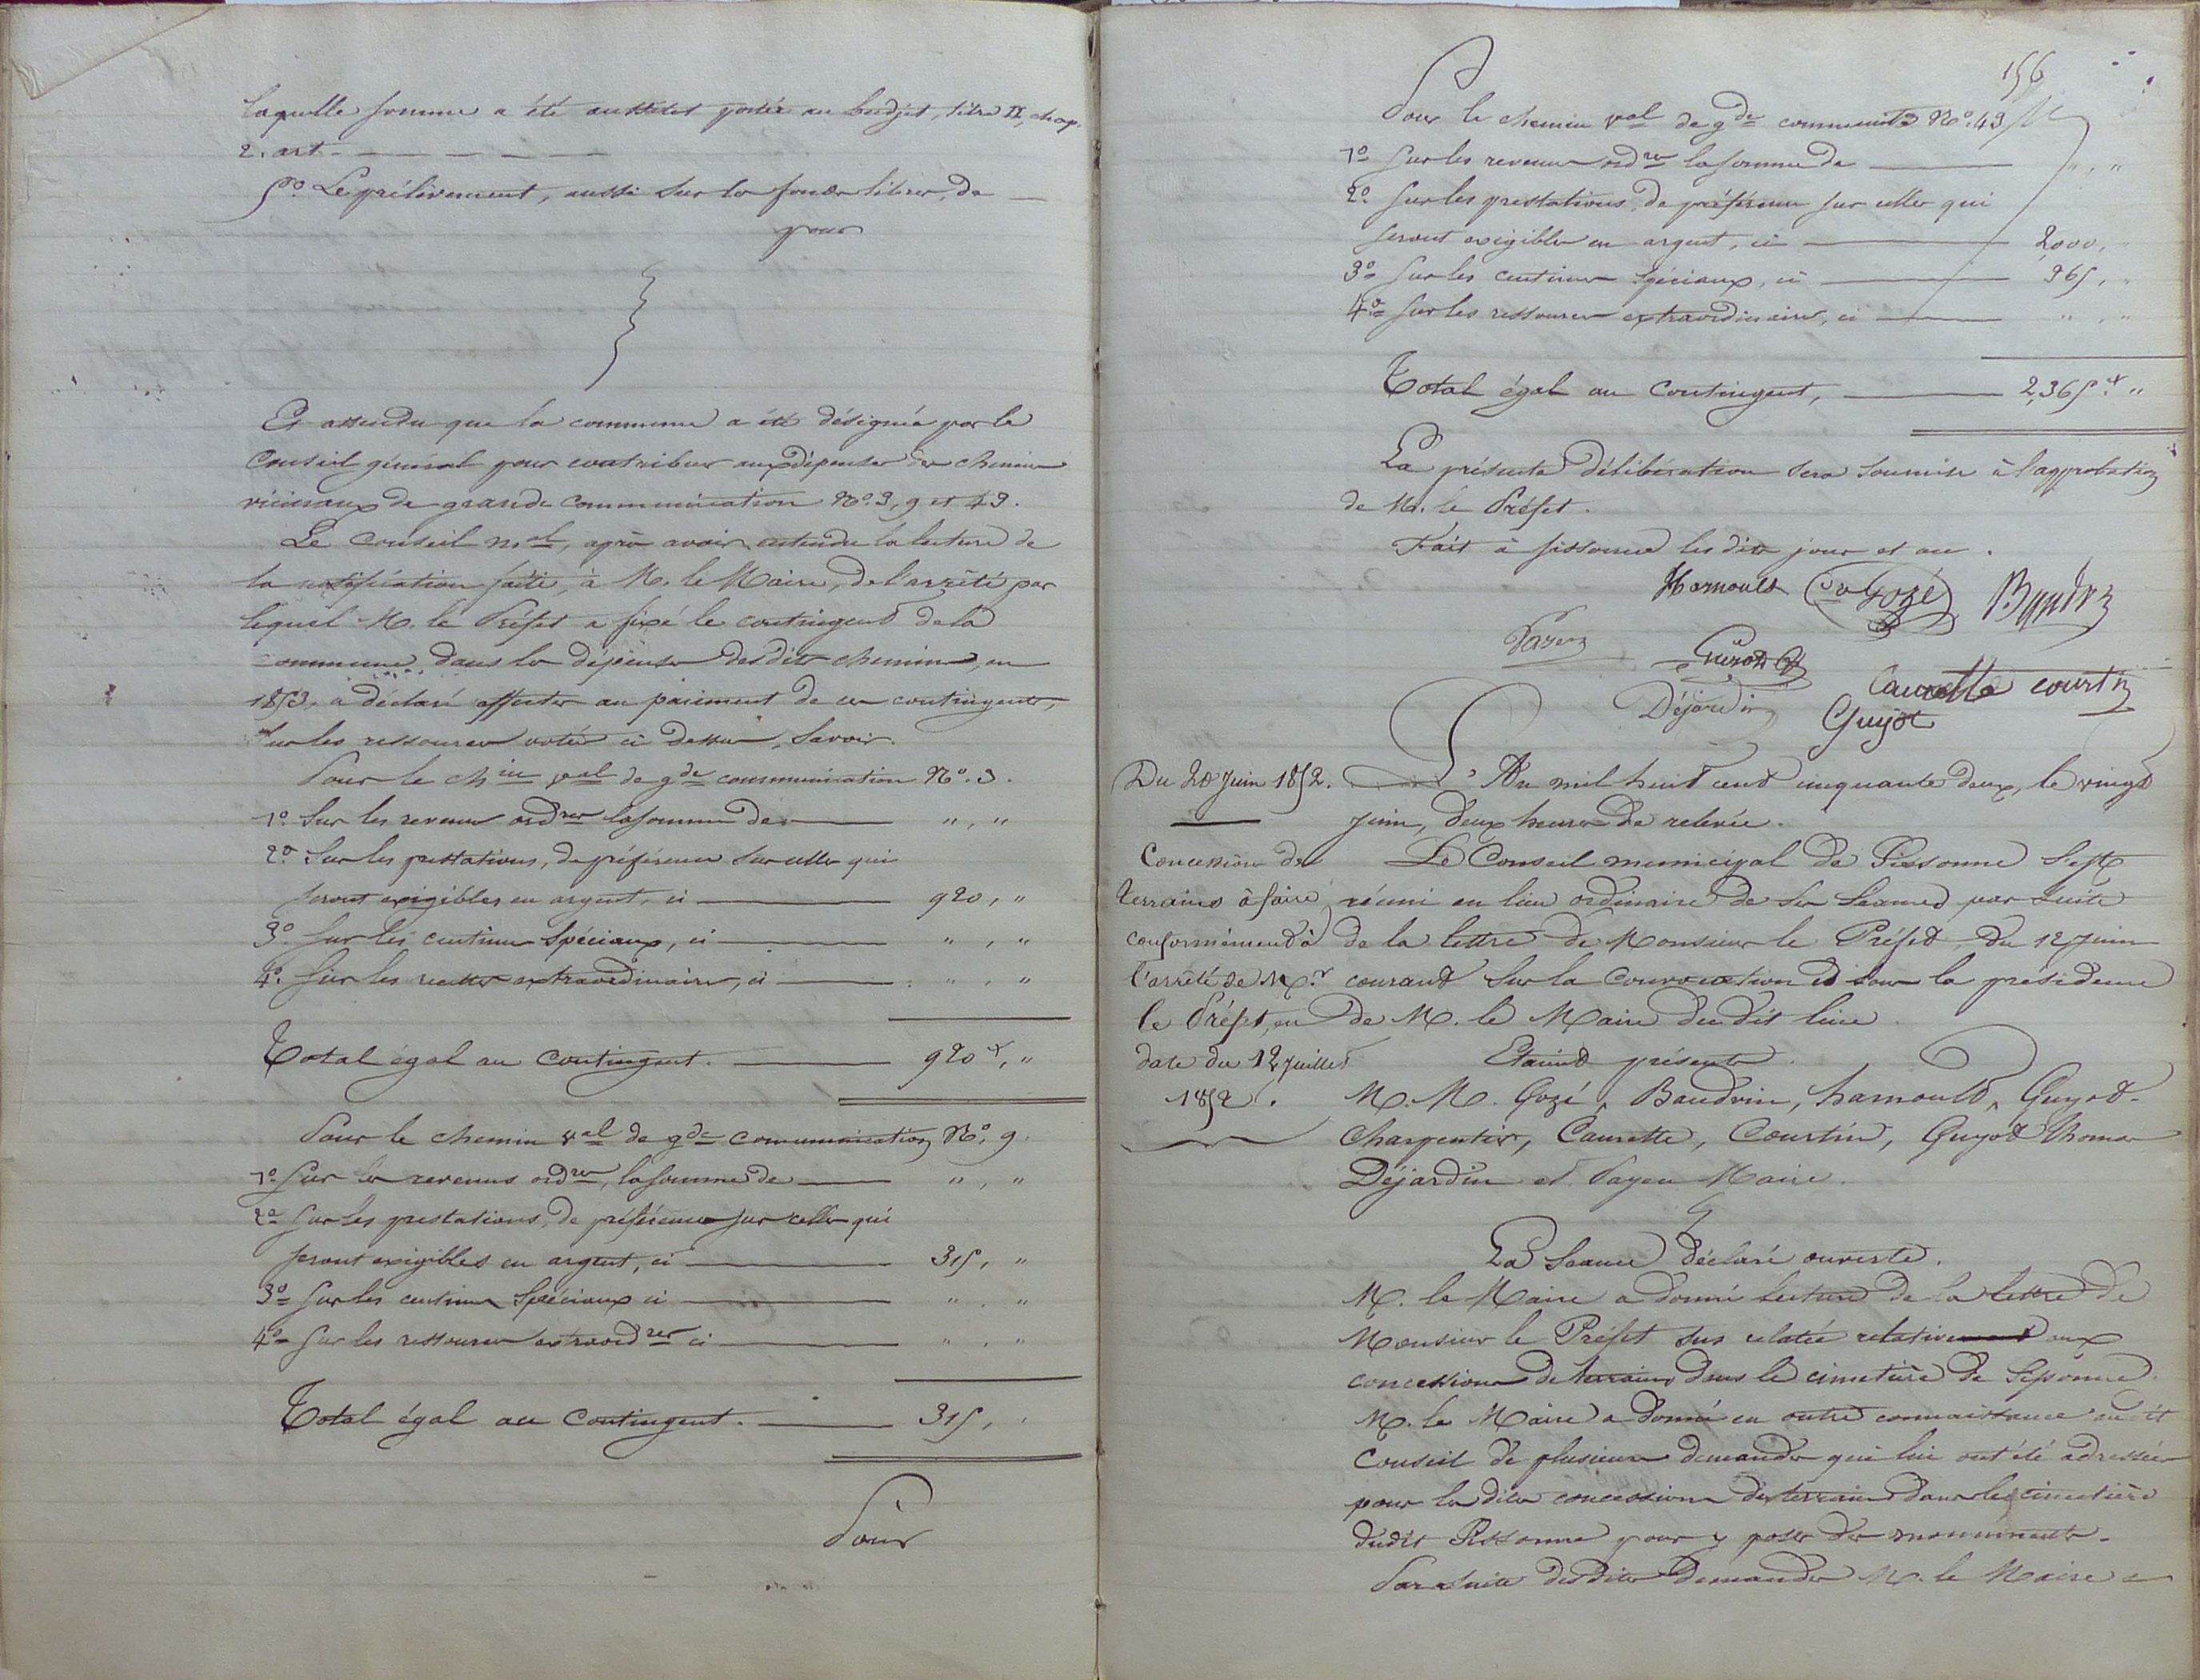 laquelle somme a été aussitôt portée au budjet, titre II, chap.
2. art. — — — — — —
5° Le prélèvement, aussi sur les fonds libres, de —
pour
Et attendu que la commune a été désignée par le
Conseil général pour contribuer aux dépenses des chemins
vicinaux de grande communication N°. 3, 9 et 49.
Le Conseil m.al, après avoir entendu la lecture de
la notification faite, à M. le Maire, de l'arrêté par
lequel M. le Préfet a fixé le contingent de la
commune, dans les dépenses desdits chemins, en
1853, a déclaré affecter au paiment de ces contingents,
sur les ressources votées ci dessus, Savoir.
Pour le ch.in v.al de g.de communication N°. 3.
1° Sur les revenus ord.res la somme de — " , "
2° Sur les prestations, de préférence sur celles qui
seront exigibles en argent, ci — 920, "
3° Sur les centimes spéciaux, ci — " , "
4° Sur les recettes extraordinaires, ci — " , "
Total égal au contingent. — 920 f, "
Pour le chemin v.al de g.de communication N°. 9.
1° Sur les revenus ord.res, la somme de — " , "
2° Sur les prestations, de préférence sur celles qui
seront exigibles en argent, ci — 315, "
3° Sur les centimes spéciaux ci — " , "
4° Sur les ressources extraord.res ci — " , "
Total égal au contingent. — 315, "
Pour
156
Pour le chemin v.al de g.de communic.on N°. 49
1° Sur les revenus ord.res la somme de — " , "
2° Sur les prestations, de préférence sur celles qui
seront exigibles en argent, ci — 2,000, "
3° Sur les centimes spéciaux, ci — 365, "
4° Sur les ressources extraordinaires, ci — " , "
Total égal au contingent, — 2,365 f. "
La présente délibération sera soumise à l'approbation
de M. le Préfet.
Fait à Sissonne les dits jour et an.
Harnould Gozé Baudrin
Payen Guyot
Caurette Courtin
Déjardin Guyot
Du 20 Juin 1852.
Concession de
terrains à faire
conformément à
l'arrêté de M.r
le Préfet, en
date du 12 juillet
1852.
L'An mil huit cent cinquante deux, le vingt
Juin, deux heures de relevée.
Le Conseil municipal de Sissonne s'est
réuni en lieu ordinaire de ses séances par suite
de la lettre de Monsieur le Préfet du 12 Juin
courant sur la convocation et sous la présidence
de M. le Maire dudit lieu.
Etaient présents.
M.M. Gozé, Baudrin, harnould, Guyot-
Charpentier, Caurette, Courtin, Guyot Thomas
Déjardin et Payen Maire.
La Séance déclarée ouverte.
M. le Maire a donné lecture de la lettre de
Monsieur le Préfet sus relatée relativement aux
concessions de terrains dans le cimetière de Sissonne.
M. le Maire a donné en outre connaissance audit
Conseil de plusieurs demandes qui lui ont été adressées
pour lesdites concessions de terrains dans le cimetière
dudit Sissonne pour y poser des monuments.
Par suite desdites demandes M. le Maire a